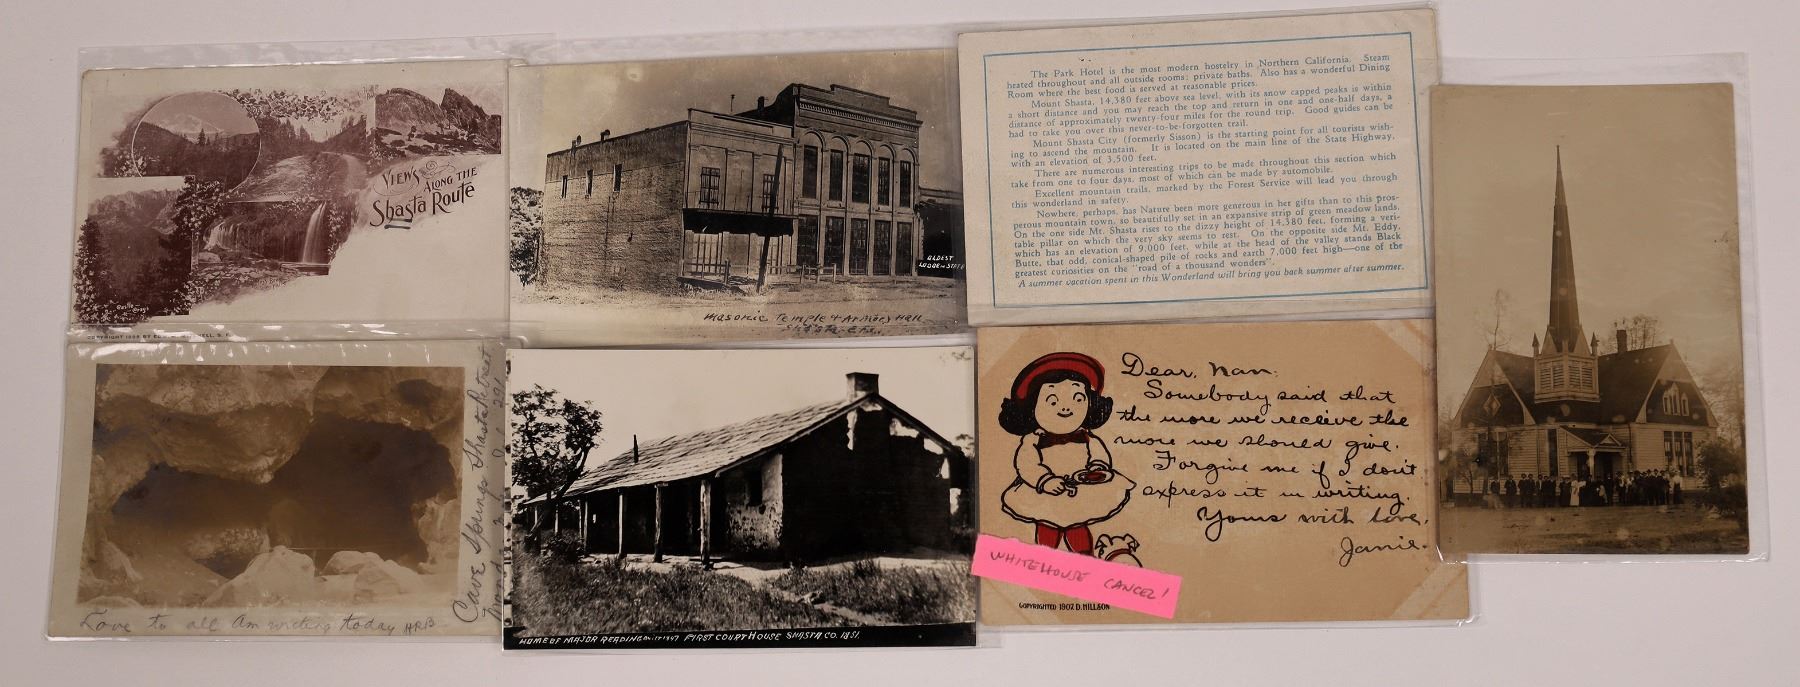 VIEWS
ALONG THE
Shasta Route
OLDEST
LODGE IN STATE
Masonic Temple & Armory Hall
Shasta
The Park Hotel is the most modern hostelry in Northern California. Steam
heated throughout and all outside rooms; private baths. Also has a wonderful Dining
Room where the best food is served at reasonable prices.
Mount Shasta, 14,380 feet above sea level, with its snow capped peaks is within
a short distance and you may reach the top and return in one and one-half days, a
distance of approximately twenty-four miles for the round trip. Good guides can be
had to take you over this never-to-be-forgotten trail.
Mount Shasta City (formerly Sisson) is the starting point for all tourists wish-
ing to ascend the mountain. It is located on the main line of the State Highway,
with an elevation of 3,500 feet.
There are numerous interesting trips to be made throughout this section which
take from one to four days, most of which can be made by automobile.
Excellent mountain trails, marked by the Forest Service will lead you through
this wonderland in safety.
Nowhere, perhaps, has Nature been more generous in her gifts than to this pros-
perous mountain town, so beautifully set in an expansive strip of green meadow lands.
On the one side Mt. Shasta rises to the dizzy height of 14,380 feet, forming a veri-
table pillar on which the very sky seems to rest. On the opposite side Mt. Eddy,
which has an elevation of 9,000 feet, while at the head of the valley stands Black
Butte, that odd, conical-shaped pile of rocks and earth 7,000 feet high—one of the
greatest curiosities on the "road of a thousand wonders".
A summer vacation spent in this Wonderland will bring you back summer after summer.
Cave Springs Shasta Retreat
Love to all Am writing today HRB
HOME OF MAJOR READING BUILT 1847 FIRST COURT HOUSE SHASTA CO. 1851.
Dear, Nan:
Somebody said that
the more we receive the
more we should give.
Forgive me if I don't
express it in writing.
Yours with love,
Janie.
WHITEHOUSE CANCEL!
COPYRIGHTED 1907. D. HILLSON